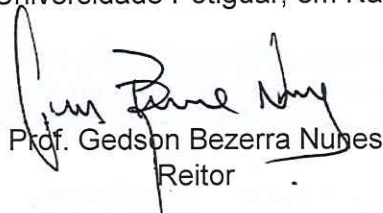 Universidade Potiguar, em Na
Prof. Gedson Bezerra Nunes
Reitor